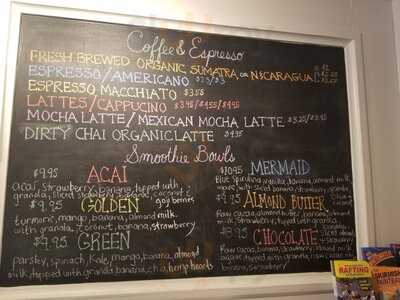 Coffee & Espresso
FRESH BREWED ORGANIC SUMATRA or NICARAGUA
ESPRESSO/AMERICANO
ESPRESSO MACCHIATO
LATTES/CAPPUCINO $3.95/$4.55/$4.95
MOCHA LATTE/MEXICAN MOCHA LATTE
DIRTY CHAI ORGANIC LATTE
Smoothie Bowls
$9.95
ACAI
acai, strawberry, banana, topped with
granola, sliced strawberry, banana, coconut &
goji berries
$9.95
GOLDEN
turmeric, mango, banana, almond milk
with granola, coconut, banana, strawberry
$9.95
GREEN
parsley, spinach, kale, mango, banana, almond
milk, topped with granola, banana, chia, hemp hearts
$10.95
MERMAID
Blue Spirulina, banana, almond milk
with sliced banana, strawberry, granola
$9.95
ALMOND BUTTER
Raw cacao, almond butter, banana, almond
milk, Strawberry, topped with granola
$8.95
CHOCOLATE
Raw cacao, banana, almond milk
topped with granola, raw cacao
banana, strawberry
RAFTING